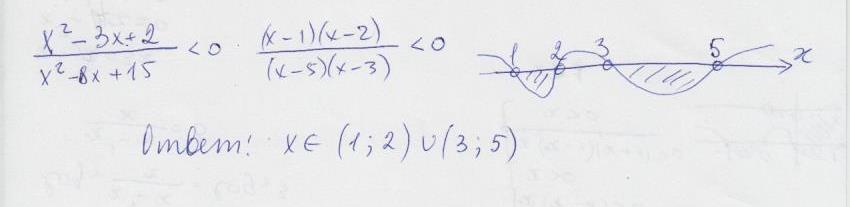 x² - 3x + 2 / x² - 8x + 15 < 0 · (x - 1)(x - 2) / (x - 5)(x - 3) < 0 1 2 3 5 x
Ответ: x ∈ (1; 2) ∪ (3; 5)